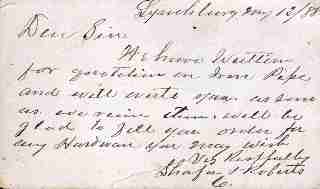 Lynchburg Aug 12/88
Dear Sir
We have Written
for quotation on Iron Pipe
and will write you as soon
as we receive them. will be
glad to fill your order for
any Hardware you may wish
Very Respectfully
& Roberts
Co